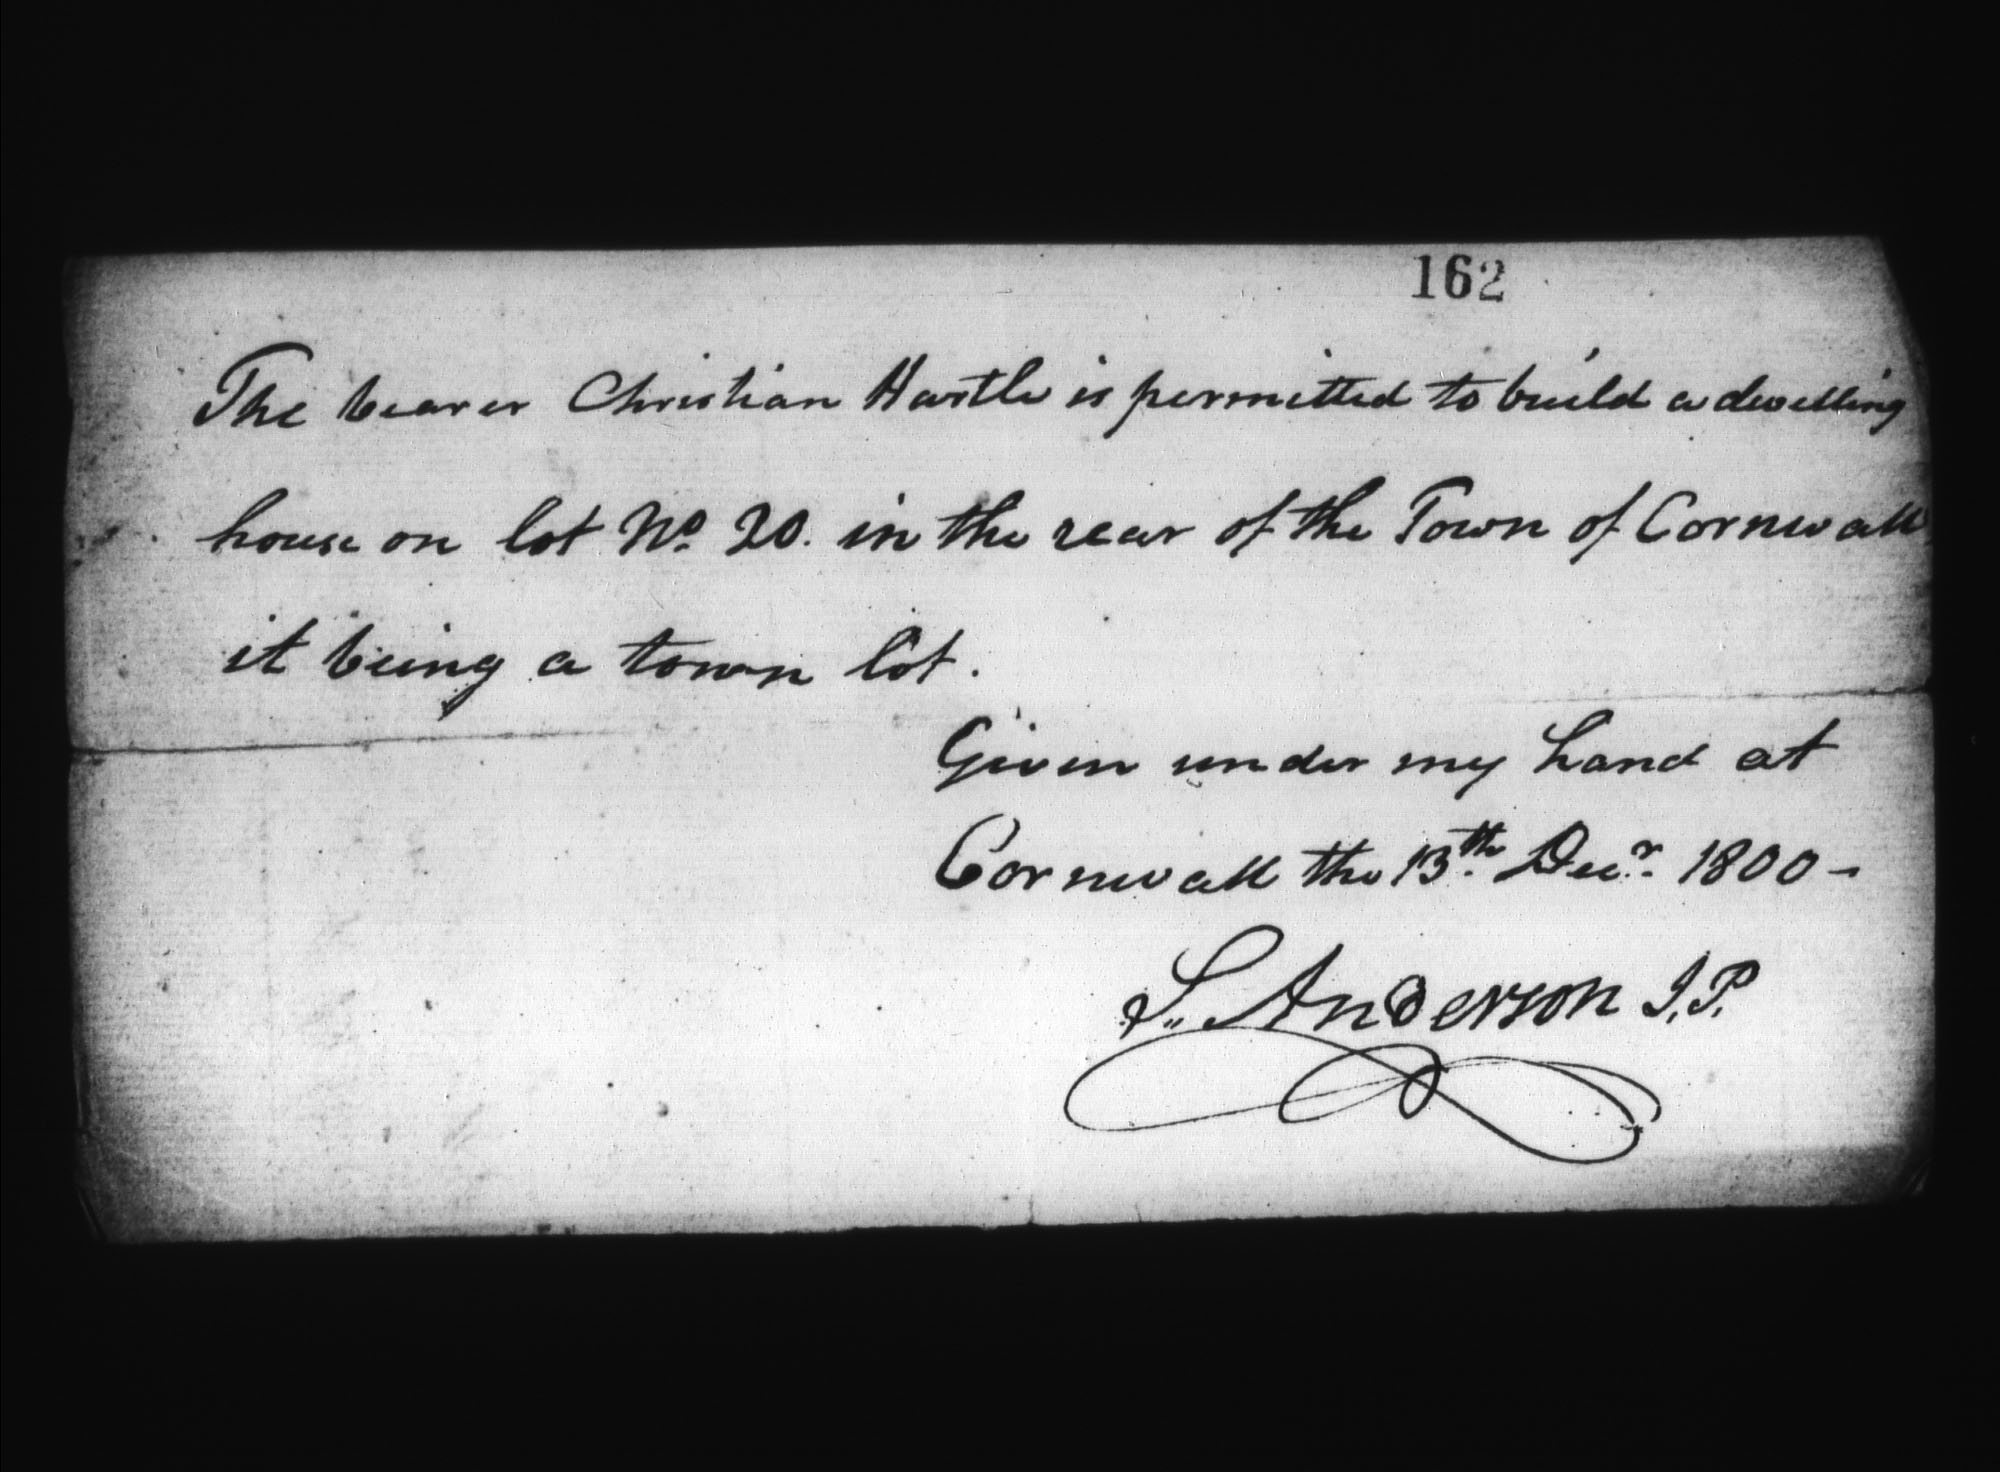 162
The bearer Christian Hartle is permitted to build a dwelling
house on lot No. 20. in the rear of the Town of Cornwall
it being a town lot.
Given under my hand at
Cornwall the 13th. Decr. 1800 -
S. Anderson J.P.